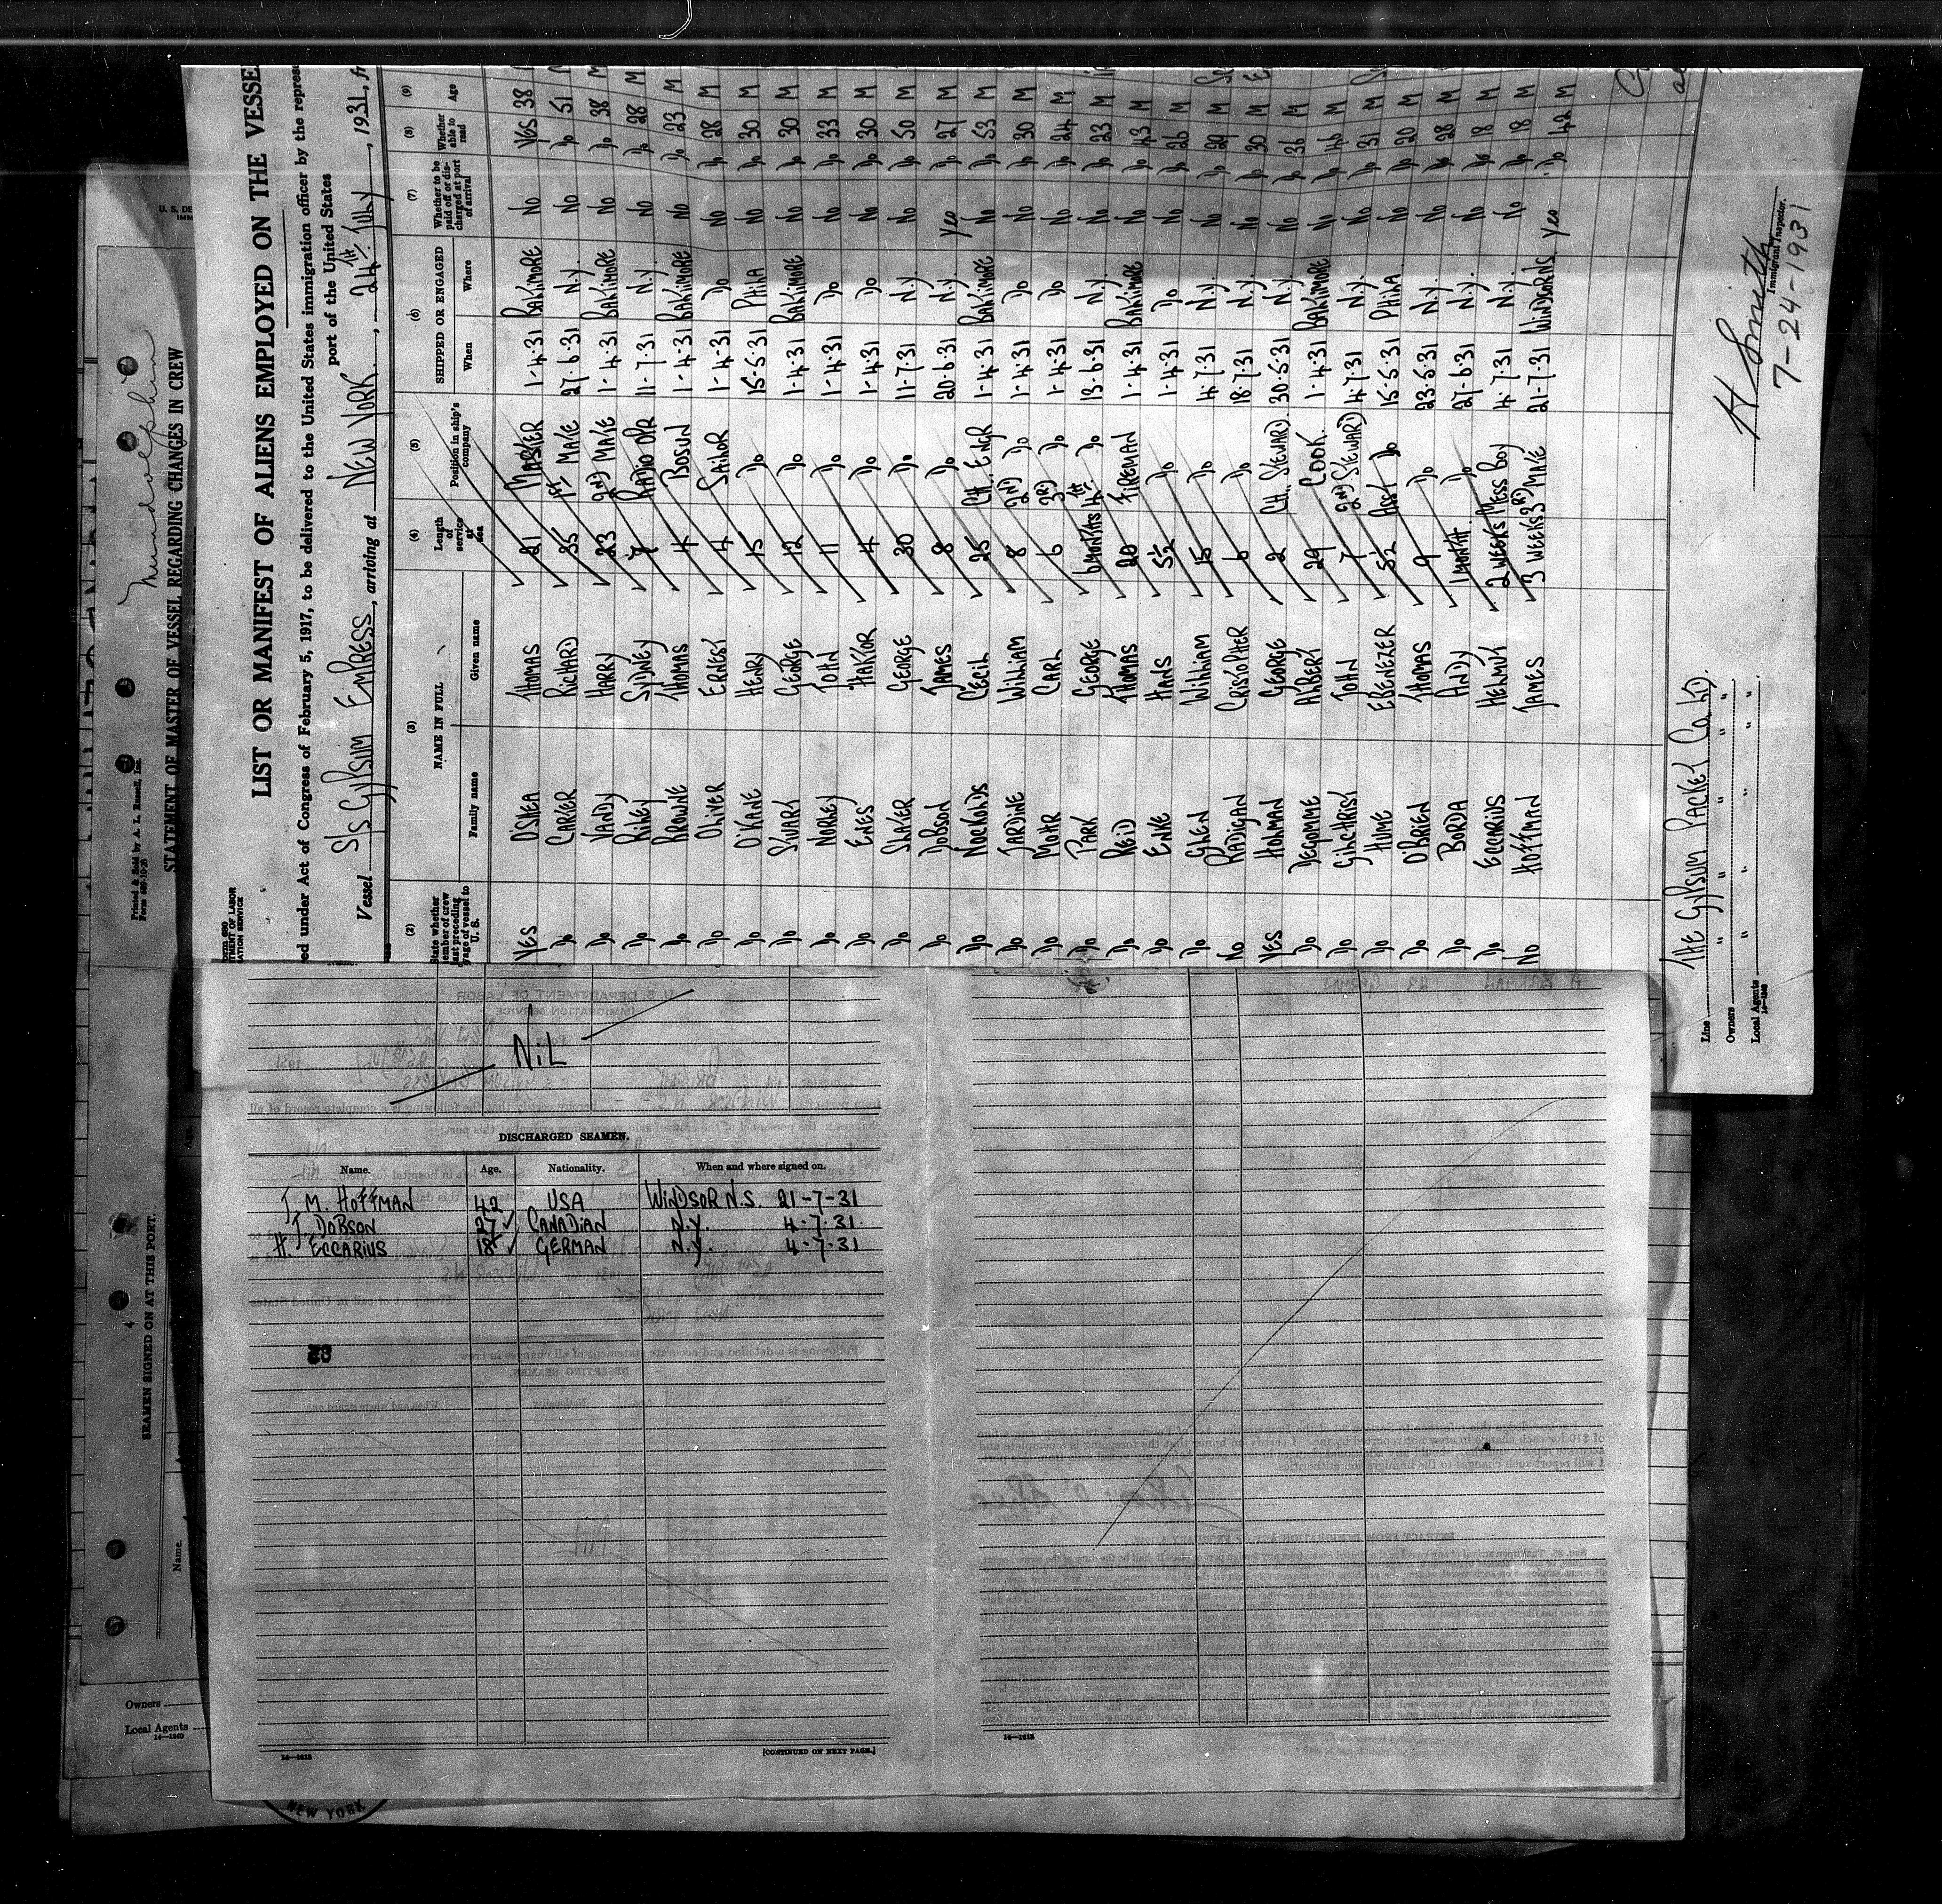 LIST OR MANIFEST OF ALIENS EMPLOYED ON THE VESSE
ed under Act of Congress of February 5, 1917, to be delivered to the United States immigration officer by the represe
port of the United States
Vessel S/S GYPSUM EMPRESS, arriving at NEW YORK, 24TH July, 1931, fr
(2) (3) (4) (5) (6) (7) (8) (9)
NAME IN FULL SHIPPED OR ENGAGED
Family name Given name Length of service at sea Position in ship's company When Where Whether to be paid off or discharged at port of arrival Whether able to read Age
YES O'SHEA THOMAS 21 MASTER 1-4-31 BALTIMORE NO YES 38
Do CARTER RICHARD 35 1ST MATE 27-6-31 N.Y. NO Do 51
Do VANDY HARRY 23 2ND MATE 1-4-31 BALTIMORE NO Do 38 M
Do RILEY SYDNEY 7 RADIO OPR 11-7-31 N.Y. NO Do 28 M
Do BROWNE THOMAS 4 BOSUN 1-4-31 BALTIMORE NO Do 23 M
Do OLIVER ERNEST 4 SAILOR 1-4-31 Do NO Do 28 M
Do O'KANE HENRY 15 Do 15-5-31 PHILA NO Do 30 M
Do STUART GEORGE 12 Do 1-4-31 BALTIMORE NO Do 30 M
Do MORLEY JOHN 11 Do 1-4-31 Do NO Do 33 M
Do ENES HAKTOR 4 Do 1-4-31 Do NO Do 30 M
Do SLATER GEORGE 30 Do 11-7-31 N.Y. NO Do 50 M
Do DOBSON JAMES 8 Do 20-6-31 N.Y. Yes Do 27 M
Do CECIL 25 CH. ENGR 1-4-31 BALTIMORE NO Do 53 M
Do JARDINE WILLIAM 8 2ND Do 1-4-31 Do NO Do 30 M
Do MOHR CARL 6 3RD Do 1-4-31 Do NO Do 24 M
Do PARK GEORGE 6 MONTHS 4TH Do 13-6-31 N.Y. NO Do 23 M
Do REID THOMAS 20 FIREMAN 1-4-31 BALTIMORE NO Do 43 M
Do ENKE HANS 5½ Do 1-4-31 Do NO Do 26 M
Do GLEN WILLIAM 15 Do 4-7-31 N.Y. NO Do 29 M
NO RADIGAN CRISTOPHER 6 Do 18-7-31 N.Y. NO Do 30 M
YES HOLMAN GEORGE 2 CH. STEWARD 30-5-31 N.Y. NO Do 36 M
Do DEGOMME ALBERT 29 COOK 1-4-31 BALTIMORE NO Do 46 M
Do GILCHRIST JOHN 7 2ND STEWARD 4-7-31 N.Y. NO Do 31 M
Do HUME EBENEZER 5½ ASST Do 15-5-31 PHILA NO Do 20 M
Do O'BRIEN THOMAS 9 Do 23-5-31 N.Y. NO Do 28 M
Do BORDA ANDY 1 MONTH Do 27-6-31 N.Y. NO Do 18 M
Do ECCARIUS HELMUT 2 WEEKS MESS BOY 4-7-31 N.Y. NO Do 18 M
NO HOFFMAN JAMES 3 WEEKS 3RD MATE 21-7-31 WINDSOR N.S. Yes Do 42 M
Line THE GYPSUM PACKET Co LTD
Owners " " " "
Local Agents " " " "
14-1240
H Smith
Immigrant Inspector.
7-24-1931
Printed & Sold by A. L. Russell, Inc.
STATEMENT OF MASTER OF VESSEL REGARDING CHANGES IN CREW
SEAMEN SIGNED ON AT THIS PORT.
Name.
Owners
Local Agents
14-1240
NiL
DISCHARGED SEAMEN.
Name. Age. Nationality. When and where signed on.
J. M. HOFFMAN 42 USA WINDSOR N.S. 21-7-31
J. DOBSON 27 CANADIAN N.Y. 4-7-31
H. ECCARIUS 18 GERMAN N.Y. 4-7-31
[CONTINUED ON NEXT PAGE.]
NEW YORK